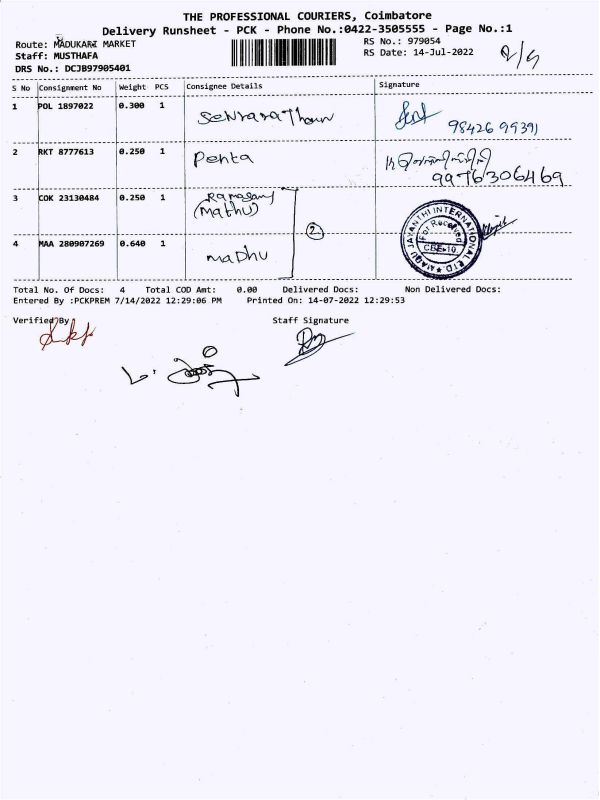 THE PROFESSIONAL COURIERS, Coimbatore
Delivery Runsheet - PCK - Phone No.:0422-3505555 - Page No.:1
Route: MADUKARI MARKET RS No.: 979054
Staff: MUSTHAFA RS Date: 14-Jul-2022
DRS No.: DCJB97905401
S No Consignment No Weight PCS Consignee Details Signature
1 POL 1897022 0.300 1
98426 99391
2 RKT 8777613 0.250 1 Penta
9976306469
3 COK 23130484 0.250 1 Ramasamy
(Mathu)
2
4 MAA 280907269 0.640 1 MaDhu
JAYANTHI INTERNATIONAL
For Received
CBE-10
Total No. Of Docs: 4 Total COD Amt: 0.00 Delivered Docs: Non Delivered Docs:
Entered By :PCKPREM 7/14/2022 12:29:06 PM Printed On: 14-07-2022 12:29:53
Verified By Staff Signature